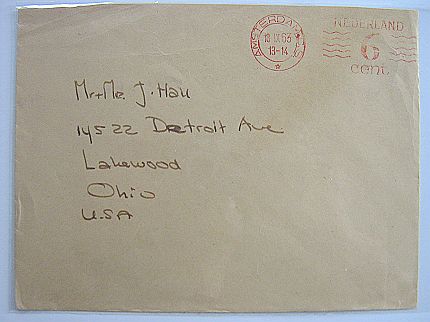 AMSTERDAM
13 IX 63
13-14
NEDERLAND
6
cent
Mr+Me. J. Hall
14522 Detroit Ave
Lakewood
Ohio
U.S.A